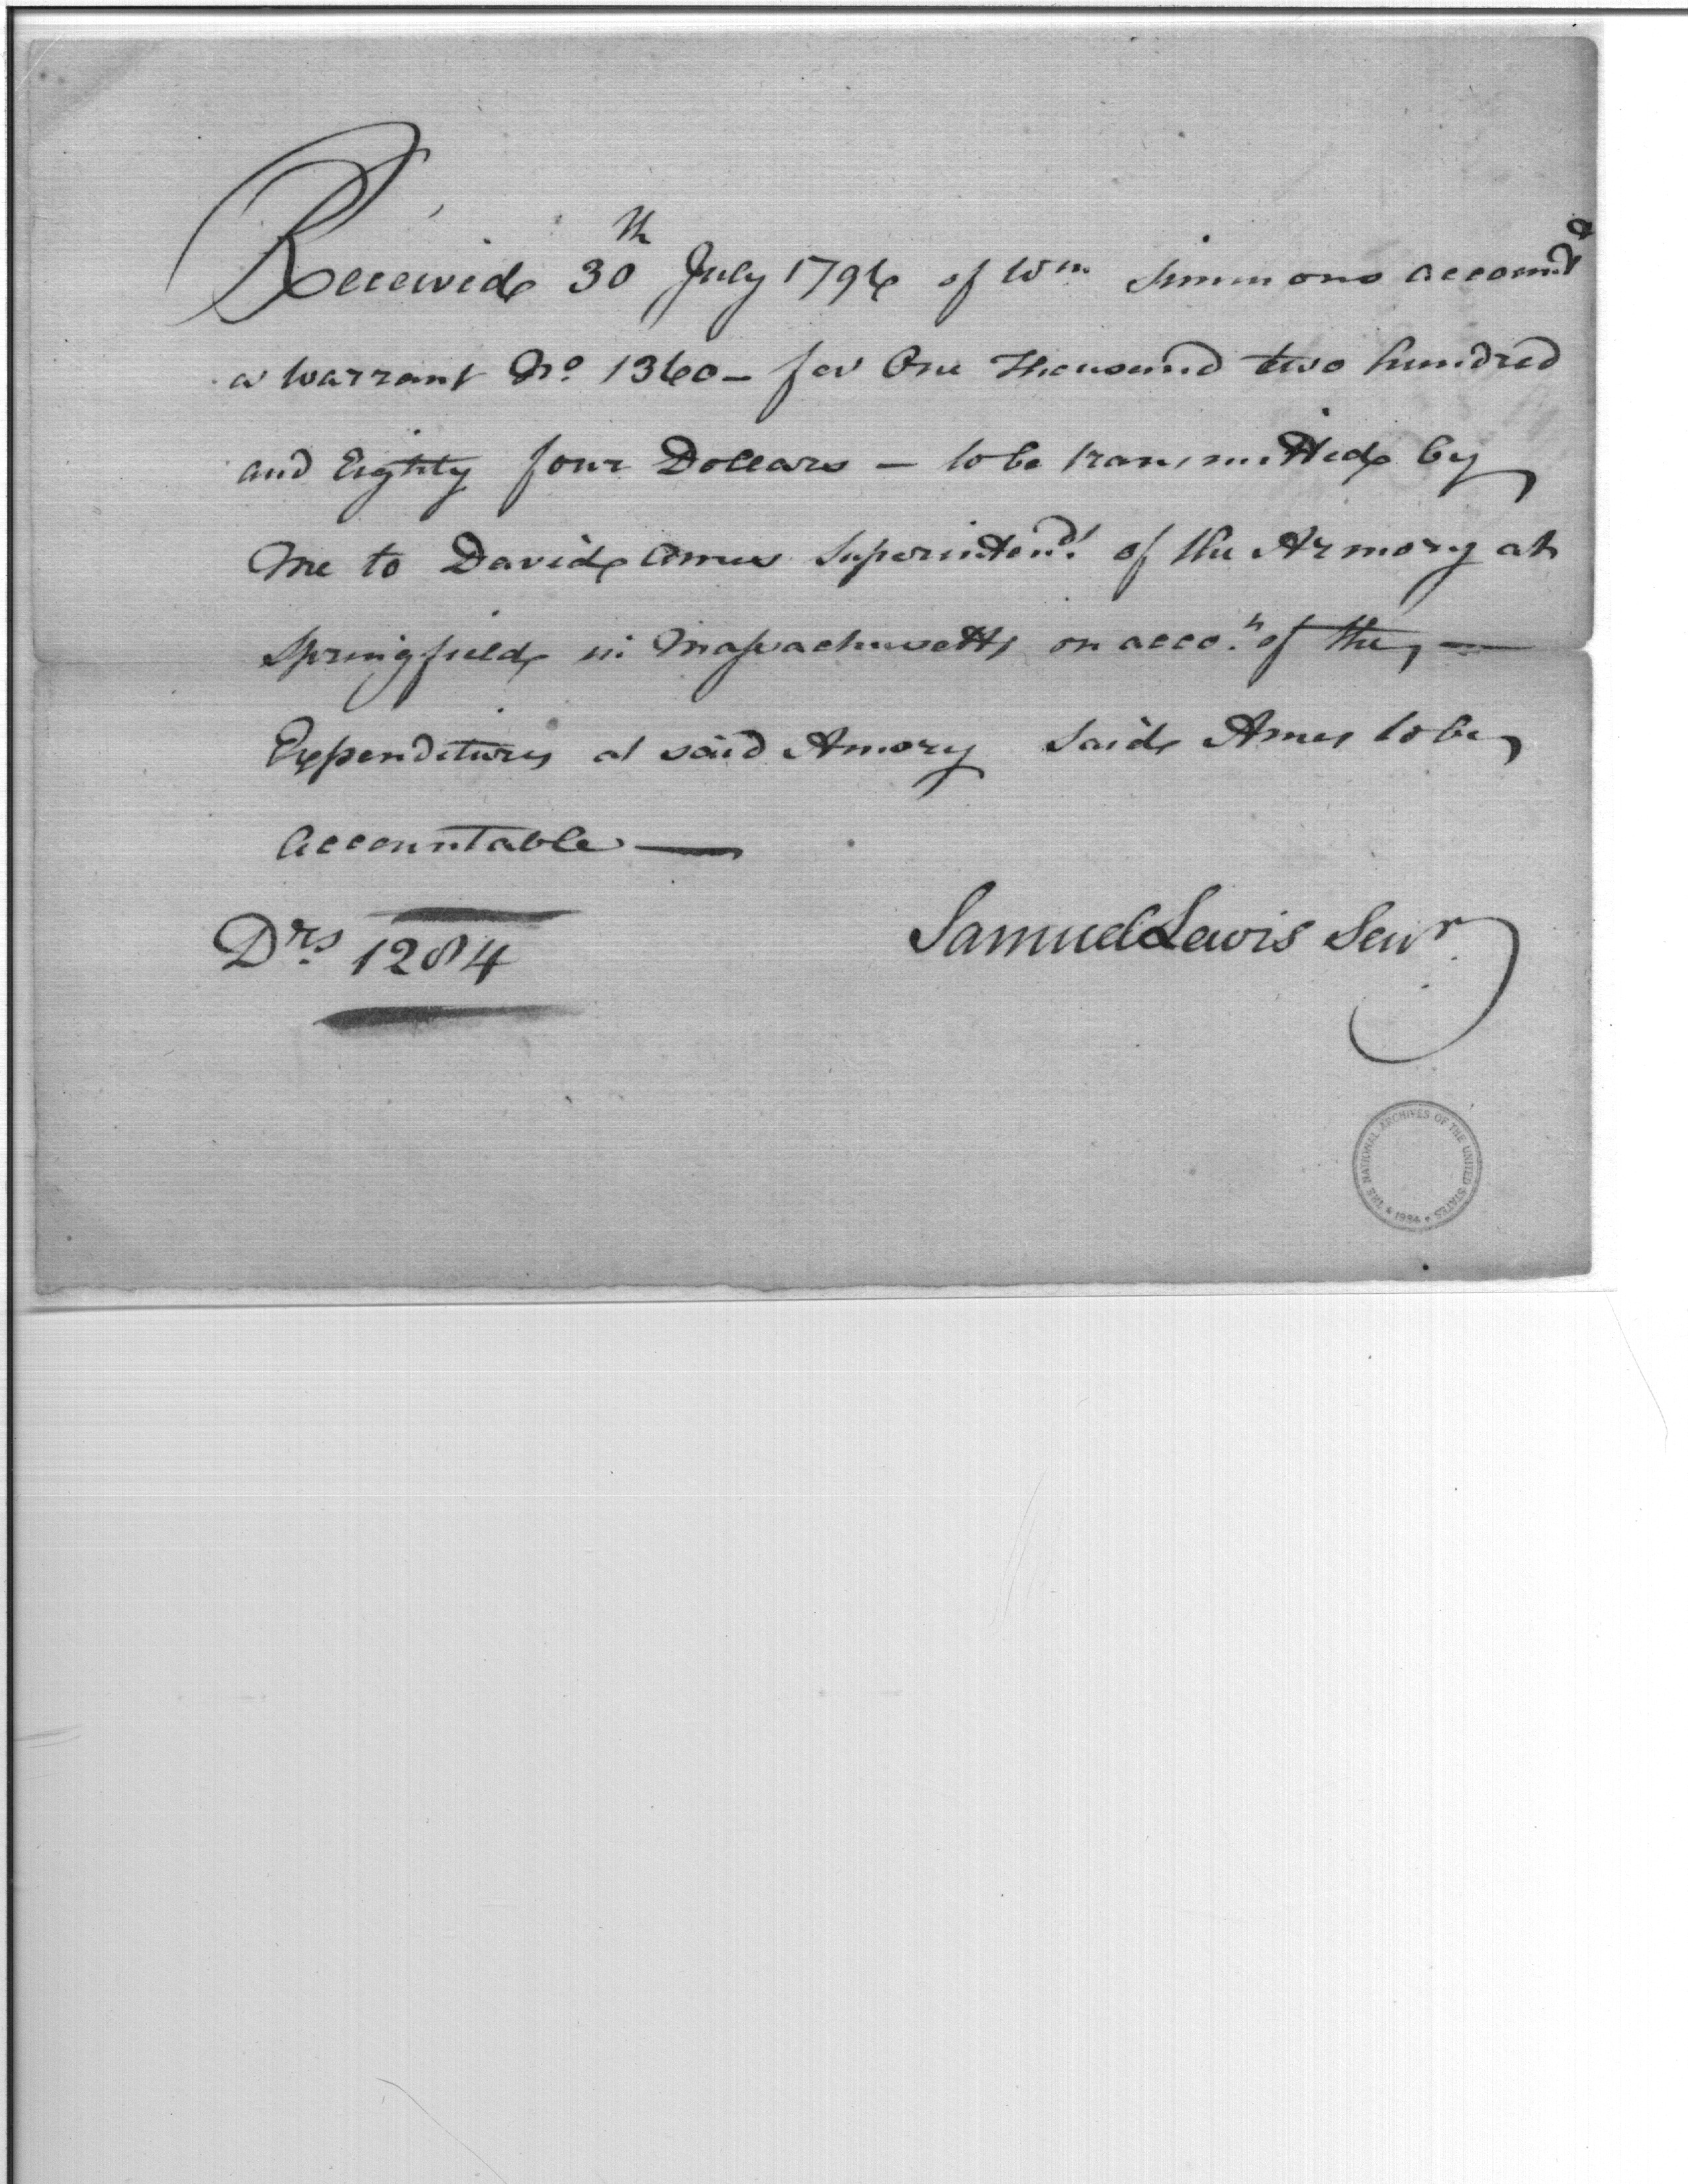 Received 30th July 1796 of Wm Simmons accound
a warrant No 1360 - for One Thousand two hundred
and Eighty four Dollars - to be transmitted by
me to David Ames Superintendt of the Armory at
Springfield in Massachusetts on accot of the -
Expenditures at said Amory Said Ames to be
accountable -
Drs 1284
Samuel Lewis Senr
THE NATIONAL ARCHIVES OF THE UNITED STATES
★ 1934 ★